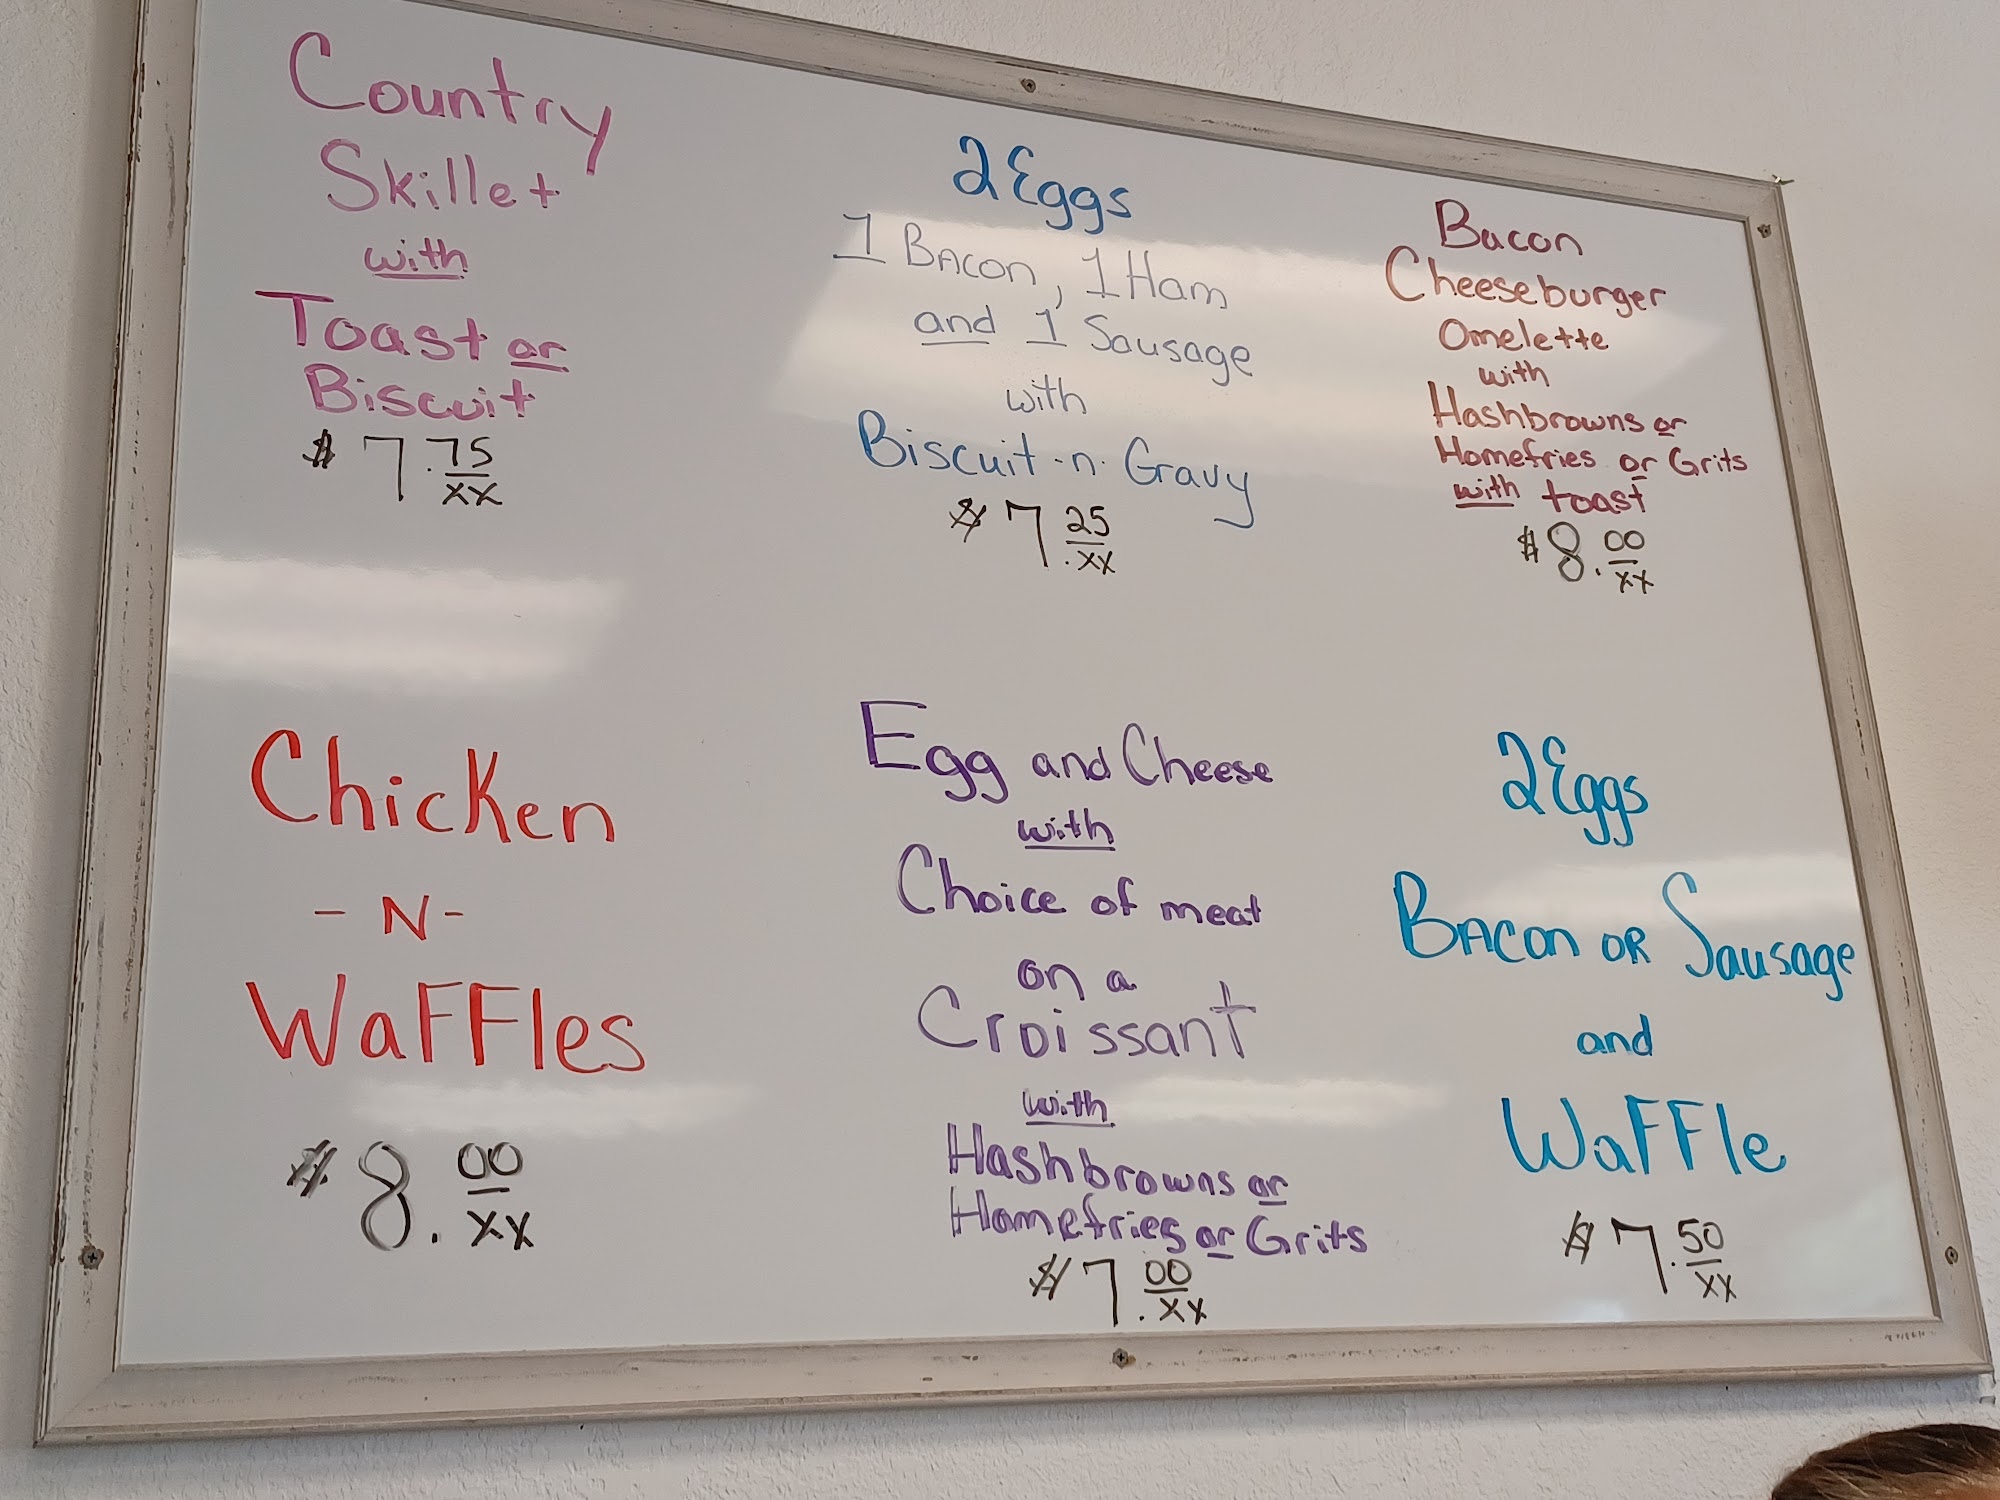 Country
Skillet
with
Toast or
Biscuit
$7.75/xx
2 Eggs
1 Bacon, 1 Ham
and 1 Sausage
with
Biscuit-n-Gravy
$7.25/xx
Bacon
Cheeseburger
Omelette
with
Hashbrowns or
Homefries or Grits
with toast
$8.00/xx
Chicken
-N-
Waffles
$8.00/xx
Egg and Cheese
with
Choice of meat
on a
Croissant
with
Hashbrowns or
Homefries or Grits
$7.00/xx
2 Eggs
Bacon or Sausage
and
Waffle
$7.50/xx